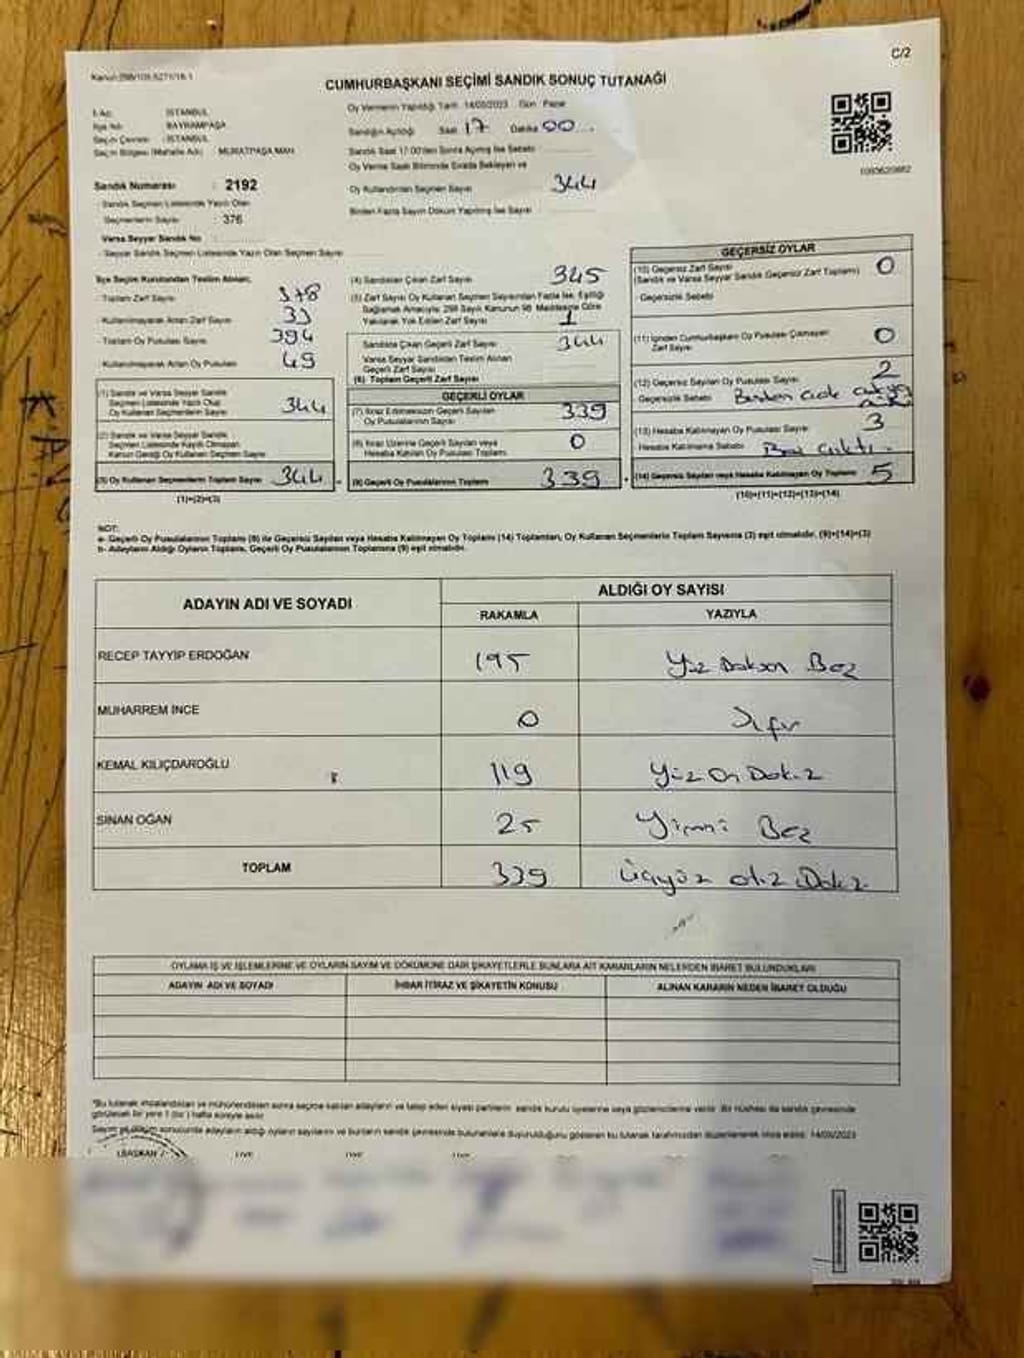 Kanun:298/105.5271/16.1
C/2
CUMHURBAŞKANI SEÇİMİ SANDIK SONUÇ TUTANAĞI
İl Adı : İSTANBUL
İlçe Adı : BAYRAMPAŞA
Seçim Çevresi : İSTANBUL
Seçim Bölgesi (Mahalle Adı) : MURATPAŞA MAH.
Sandık Numarası : 2192
Sandık Seçmen Listesinde Yazılı Olan
Seçmenlerin Sayısı : 376
Varsa Seyyar Sandık No :
Seyyar Sandık Seçmen Listesinde Yazılı Olan Seçmen Sayısı
Oy Vermenin Yapıldığı Tarih : 14/05/2023 Gün : Pazar
Sandığın Açıldığı Saat 17 Dakika 00
Sandık Saat 17:00'den Sonra Açılmış İse Sebebi
Oy Verme Saati Bitiminde Sırada Bekleyen ve
Oy Kullandırılan Seçmen Sayısı 344
Birden Fazla Sayım Döküm Yapılmış İse Sayısı
1093620882
İlçe Seçim Kurulundan Teslim Alınan;
Toplam Zarf Sayısı 378
Kullanılmayarak Artan Zarf Sayısı 33
Toplam Oy Pusulası Sayısı 394
Kullanılmayarak Artan Oy Pusulası 49
(1) Sandık ve Varsa Seyyar Sandık
Seçmen Listesinde Yazılı Olup
Oy Kullanan Seçmenlerin Sayısı 344
(2) Sandık ve Varsa Seyyar Sandık
Seçmen Listesinde Kayıtlı Olmayan
Kanun Gereği Oy Kullanan Seçmenlerin Sayısı
(3) Oy Kullanan Seçmenlerin Toplam Sayısı 344
(1)+(2)=(3)
(4) Sandıktan Çıkan Zarf Sayısı 345
(5) Zarf Sayısı Oy Kullanan Seçmen Sayısından Fazla İse, Eşitliği
Sağlamak Amacıyla 298 Sayılı Kanunun 98. Maddesine Göre
Yakılarak Yok Edilen Zarf Sayısı 1
Sandıkta Çıkan Geçerli Zarf Sayısı 344
Varsa Seyyar Sandıktan Teslim Alınan
Geçerli Zarf Sayısı
(6) Toplam Geçerli Zarf Sayısı
GEÇERLİ OYLAR
(7) İtiraz Edilmeksizin Geçerli Sayılan
Oy Pusulalarının Sayısı 339
(8) İtiraz Üzerine Geçerli Sayılan veya
Hesaba Katılan Oy Pusulası Toplamı 0
(9) Geçerli Oy Pusulalarının Toplamı 339
GEÇERSİZ OYLAR
(10) Geçersiz Zarf Sayısı 0
(Sandık ve Varsa Seyyar Sandık Geçersiz Zarf Toplamı)
Geçersizlik Sebebi
(11) İçinden Cumhurbaşkanı Oy Pusulası Çıkmayan
Zarf Sayısı 0
(12) Geçersiz Sayılan Oy Pusulası Sayısı 2
Geçersizlik Sebebi
(13) Hesaba Katılmayan Oy Pusulası Sayısı 3
Hesaba Katılmama Sebebi Boş çıktı
(14) Geçersiz Sayılan veya Hesaba Katılmayan Oy Toplamı 5
(10)+(11)+(12)+(13)=(14)
NOT:
a- Geçerli Oy Pusulalarının Toplamı (9) ile Geçersiz Sayılan veya Hesaba Katılmayan Oy Toplamı (14) Toplamları, Oy Kullanan Seçmenlerin Toplam Sayısına (3) eşit olmalıdır. (9)+(14)=(3)
b- Adayların Aldığı Oyların Toplamı, Geçerli Oy Pusulalarının Toplamına (9) eşit olmalıdır.
ADAYIN ADI VE SOYADI
ALDIĞI OY SAYISI
RAKAMLA YAZIYLA
RECEP TAYYİP ERDOĞAN 195 Yüz Doksan Beş
MUHARREM İNCE 0 Sıfır
KEMAL KILIÇDAROĞLU 119 Yüz On Dokuz
SİNAN OĞAN 25 Yirmi Beş
TOPLAM 339 Üçyüz otuz Dokuz
OYLAMA İŞ VE İŞLEMLERİNE VE OYLARIN SAYIM VE DÖKÜMÜNE DAİR ŞİKAYETLERLE BUNLARA AİT KARARLARIN NELERDEN İBARET BULUNDUKLARI
ADAYIN ADI VE SOYADI İHBAR İTİRAZ VE ŞİKAYETİN KONUSU ALINAN KARARIN NEDEN İBARET OLDUĞU
*Bu tutanak imzalandıktan ve mühürlendikten sonra seçime katılan adayların ve talep eden siyasi partilerin sandık kurulu üyelerine veya gözlemcilerine verilir. Bir nüshası da sandık çevresinde
görülecek bir yere 1 (bir) hafta süreyle asılır.
Sayım ve döküm sonucunda adayların aldığı oyların sayılarını ve bunların sandık çevresinde bulunanlara duyurulduğunu gösteren bu tutanak tarafımızdan düzenlenerek imza edildi. 14/05/2023
BAŞKAN